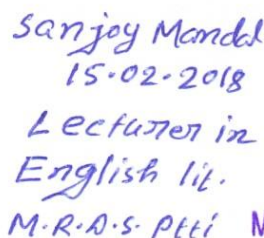 Sanjoy Mandal
15.02.2018
Lecturer in
English lit.
M.R.D.S. PttI